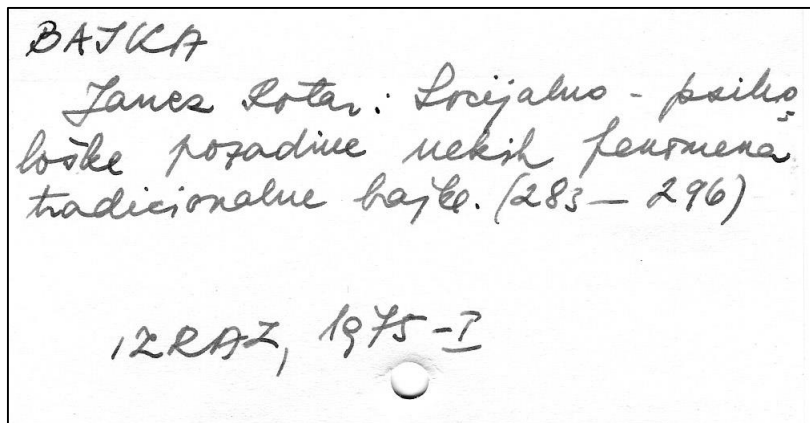 BAJKA
Janez Rotar: Socijalno - psiho
loške pozadine nekih fenomena
tradicionalne bajke. (283 — 296)
IZRAZ, 1975 - I